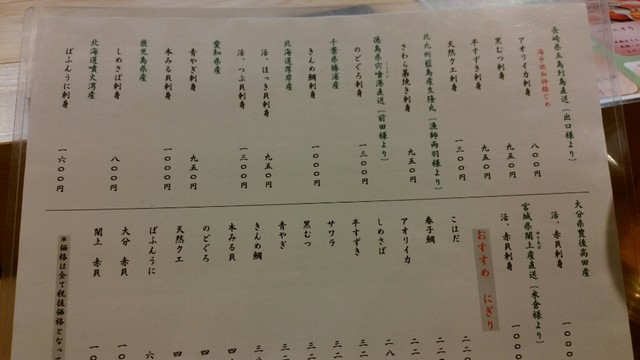 長崎県五島列島直送（出口様より）
海中飲血神経じめ
アオリイカ刺身 八〇〇円
黒むつ刺身 九五〇円
平すずき刺身 九五〇円
天然クエ刺身 一三〇〇円
北九州藍島産生隆丸（漁師両羽様より）
さわら藁焼き刺身 九五〇円
徳島県宍喰港直送（前田様より）
のどぐろ刺身 一三〇〇円
千葉県勝浦産
きんめ鯛刺身 一〇〇〇円
北海道厚岸産
活、ほっき貝刺身 九五〇円
活、つぶ貝刺身 一三〇〇円
愛知県産
青やぎ刺身 九五〇円
本みる貝刺身 一〇〇〇円
鹿児島県産
しめさば刺身 八〇〇円
北海道噴火湾産
ばふんうに刺身 一六〇〇円
大分県豊後高田産
活、赤貝刺身 一〇〇
宮城県閖上産直送（米倉様より）
活、赤貝刺身 一〇〇
おすすめ にぎり
こはだ 二二
春子鯛 二二
アオリイカ 二二
しめさば 二八
平すずき 三二
サワラ 三二
黒むつ 三二
青やぎ 三二
きんめ鯛 三八
本みる貝 四
のどぐろ 四
天然クエ 四
ばふんうに 六
大分 赤貝 一〇
閖上 赤貝 一〇
*価格は全て税抜価格となっ